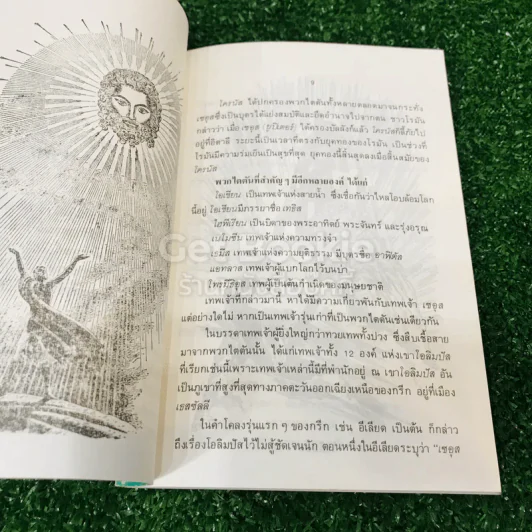 โครนัส ได้ปกครองพวกไตตันทั้งหลายตลอดมาจนกระทั่ง
เซอุสซึ่งเป็นบุตรได้แย่งสมบัติและยึดอำนาจไปจากตน ชาวโรมัน
กล่าวว่า เมื่อ เซอุส (จูปิเตอร์) ได้ครองบัลลังก์แล้ว โครนัสก็ลี้ภัยไป
อยู่ที่อิตาลี ระยะนี้เป็นเวลาที่ตรงกับยุคทองของโรมัน เป็นช่วงที่
โรมันมีความร่มเย็นเป็นสุขที่สุด ยุคทองนี้สิ้นสุดลงเมื่อสิ้นสมัยของ
โครนัส
พวกไตตันที่สำคัญ ๆ มีอีกหลายองค์ ได้แก่
โอเชียน เป็นเทพเจ้าแห่งสายน้ำ ซึ่งเชื่อกันว่าไหลโอบล้อมโลก
นี้อยู่ โอเชียนมีภรรยาชื่อ เทธิส
ไฮพีเรียน เป็นบิดาของพระอาทิตย์ พระจันทร์ และรุ่งอรุณ
เนโมซิน เทพเจ้าแห่งความทรงจำ
เธมิส เทพเจ้าแห่งความยุติธรรม มีบุตรชื่อ
แอทลาส เทพเจ้าผู้แบกโลกไว้บนบ่า
โพรมีธียุส เทพเจ้าผู้เป็นต้นกำเนิดของมนุษยชาติ
เทพเจ้าที่กล่าวมานี้ หาได้มีความเกี่ยวพันกับเทพเจ้า เซอุส
แต่อย่างใดไม่ หากเป็นเทพเจ้ารุ่นเก่าที่เป็นพวกไตตันเช่นเดียวกัน
ในบรรดาเทพเจ้าผู้ยิ่งใหญ่กว่าทวยเทพทั้งปวง ซึ่งสืบเชื้อสาย
มาจากพวกไตตันนั้น ได้แก่เทพเจ้าทั้ง 12 องค์ แห่งเขาโอลิมปัส
ที่เรียกเช่นนี้เพราะเทพเจ้าเหล่านี้มีที่พำนักอยู่ ณ เขาโอลิมปัส อัน
เป็นภูเขาที่สูงที่สุดทางภาคตะวันออกเฉียงเหนือของกรีก อยู่ที่เมือง
เธสซัลลี
ในคำโคลงรุ่นแรก ๆ ของกรีก เช่น อีเลียด เป็นต้น ก็กล่าว
ถึงเรื่องโอลิมปัสไว้ไม่สู้ชัดเจนนัก ตอนหนึ่งในอีเลียดระบุว่า "เซอุส